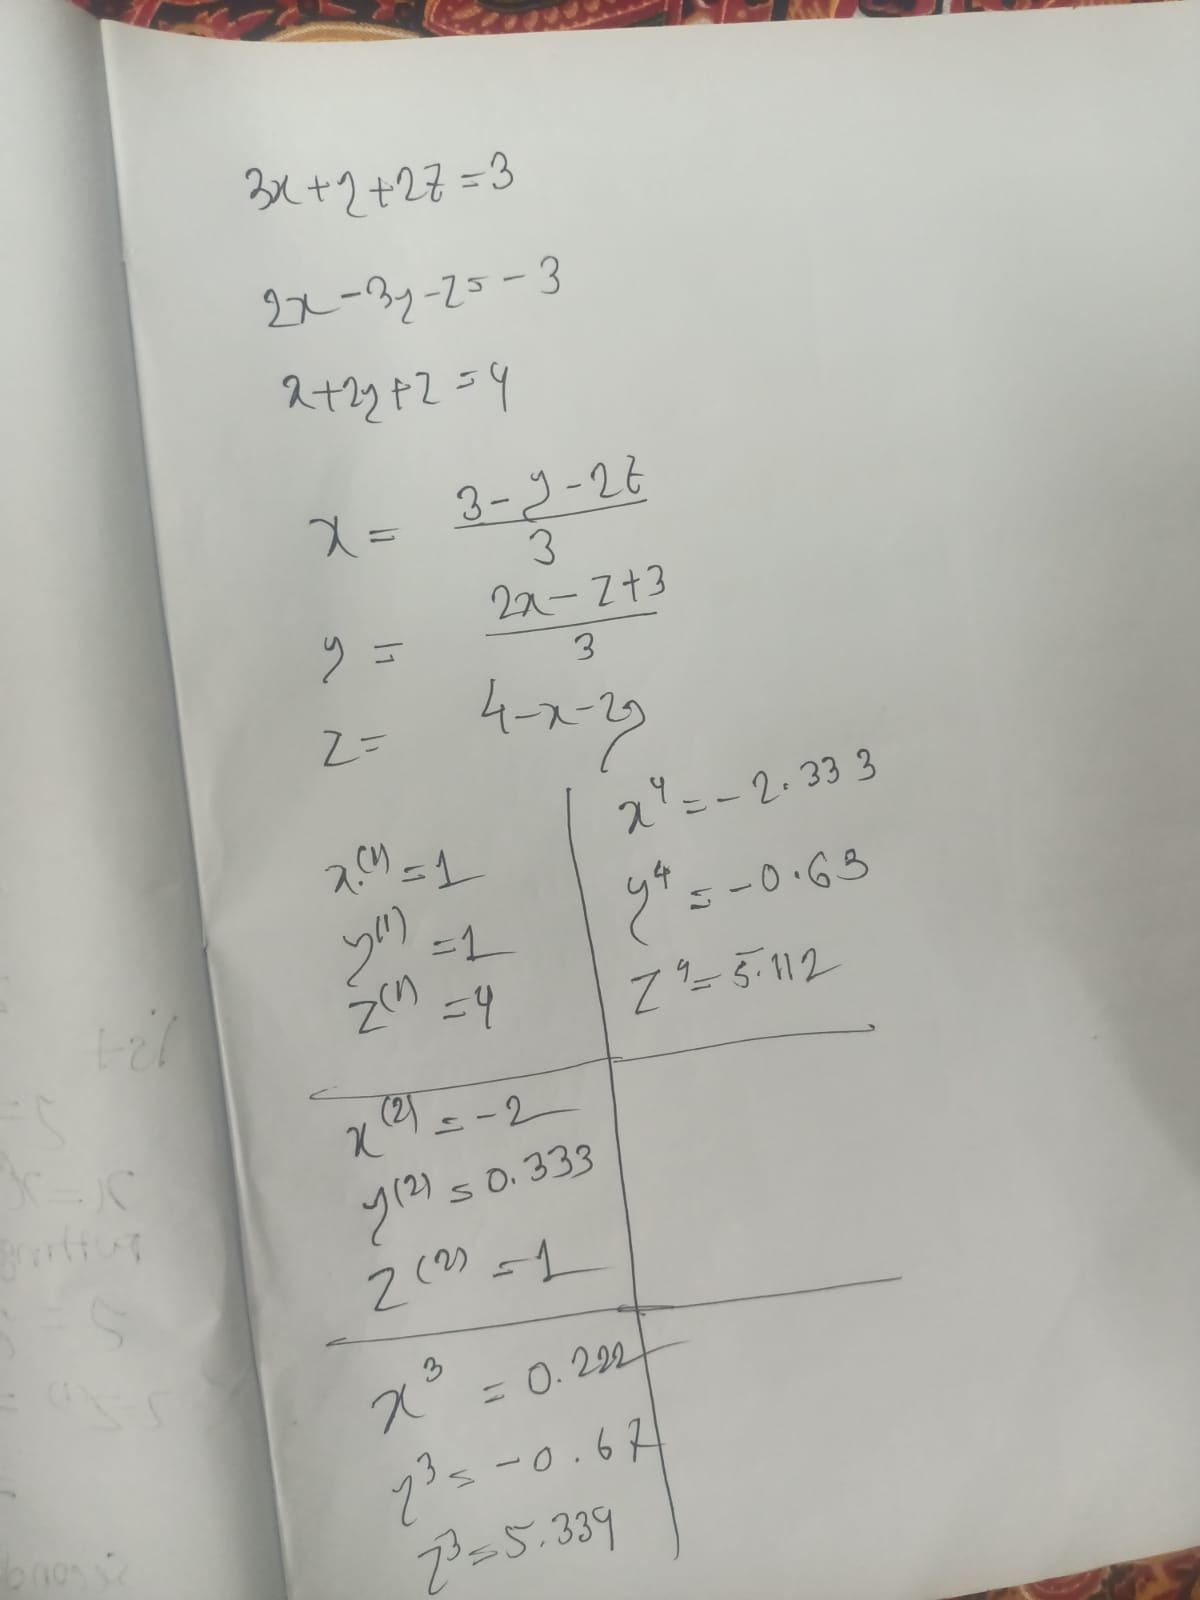 3x+y+2z=3
2x-3y-z=-3
x+2y+z=4
x= 3-y-2z
3
y= 2x-z+3
3
z= 4-x-2y
x⁽¹⁾=1
y⁽¹⁾=1
z⁽¹⁾=4
x⁽²⁾=-2
y⁽²⁾=0.333
z⁽²⁾=1
x³=0.222
y³=-0.67
z³=5.339
x⁴=-2.333
y⁴=-0.63
z⁴=5.112